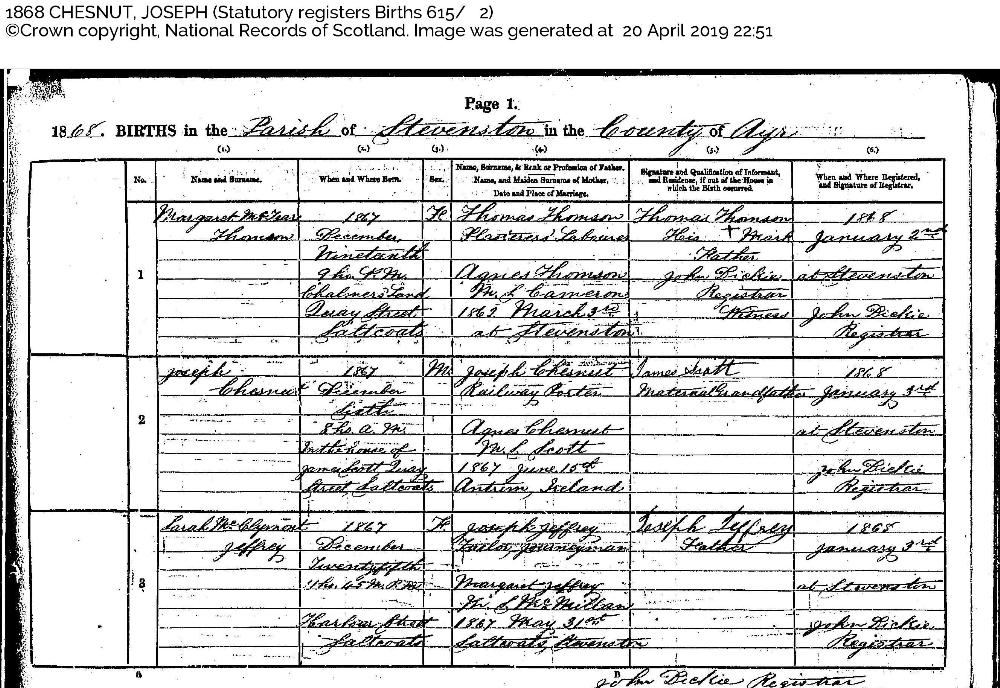 1868 CHESNUT, JOSEPH (Statutory registers Births 615/ 2)
©Crown copyright, National Records of Scotland. Image was generated at 20 April 2019 22:51
Page 1.
1868. BIRTHS in the Parish of Stevenston in the County of Ayr
(1.) (2.) (3.) (4.) (5.) (6.)
No.
Name and Surname.
When and Where Born.
Sex.
Name, Surname, & Rank or Profession of Father.
Name, and Maiden Surname of Mother.
Date and Place of Marriage.
Signature and Qualification of Informant,
and Residence, if out of the House in
which the Birth occurred.
When and Where Registered,
and Signature of Registrar.
1
Margaret
Thomson
1867
December
Nineteenth
9h. P.M.
Chalmers Land
Quay Street
Saltcoats
F.
Thomas Thomson
Plasterer's Labourer
Agnes Thomson
M.S. Cameron
1862 March 3rd
at Stevenston
Thomas Thomson
His + Mark
Father
John Dickie
Registrar
Witness
1868
January 2nd
at Stevenston
John Dickie
Registrar
2
Joseph
Chesnut
1867
December
Sixth
8h. A.M.
In the house of
James Scott Quay
Street Saltcoats
M.
Joseph Chesnut
Railway Porter
Agnes Chesnut
M.S. Scott
1867 June 15th
Antrim, Ireland
James Scott
Maternal Grandfather
1868
January 3rd
at Stevenston
John Dickie
Registrar
3
Sarah McClement
Jeffrey
1867
December
Twenty fifth
45 M. P.M.
Harbour Street
Saltcoats
F.
Joseph Jeffrey
Tailor journeyman
Margaret Jeffrey
M.S. McMillan
1867 May 31st
Saltcoats, Stevenston
Joseph Jeffrey
Father
1868
January 3rd
at Stevenston
John Dickie
Registrar
John Dickie Registrar